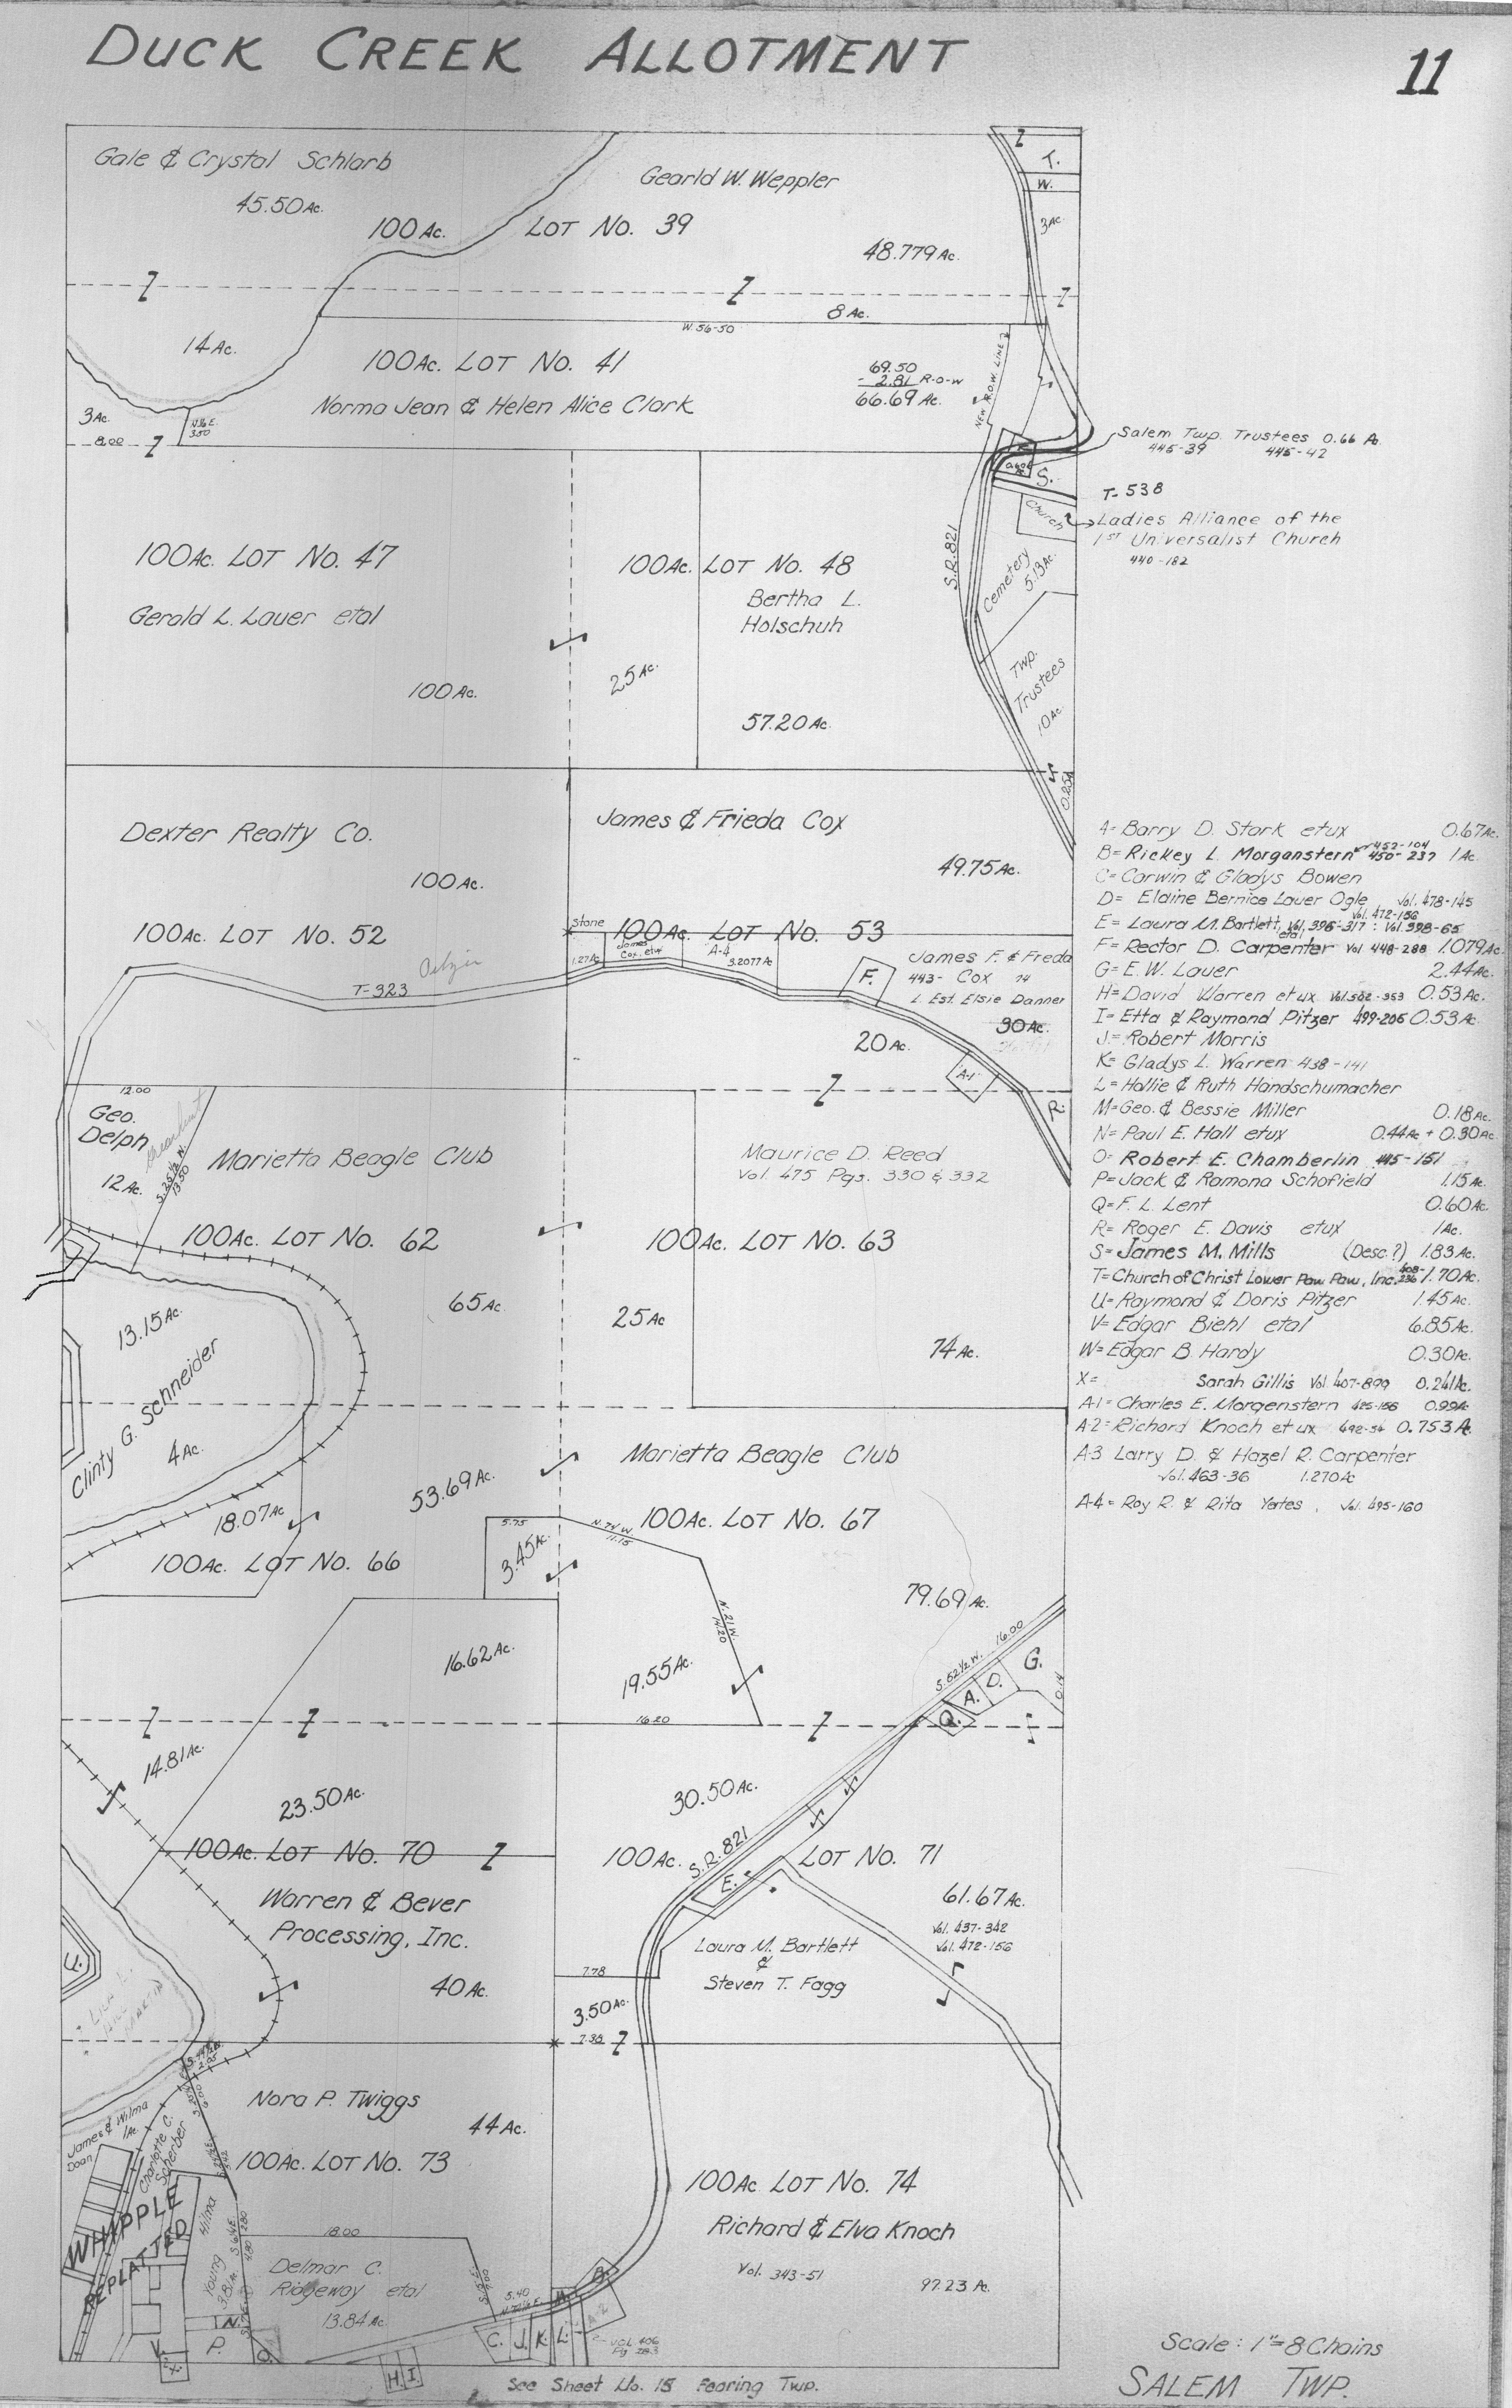 DUCK CREEK ALLOTMENT
11
Gale & Crystal Schlarb
45.50 Ac.
100 Ac. LOT No. 39
Gearld W. Weppler
48.779 Ac.
T.
W.
3 Ac.
8 Ac.
W. 56-50
14 Ac.
100 Ac. LOT No. 41
Norma Jean & Helen Alice Clark
69.50
- 2.81 R-o-w
66.69 Ac.
NEW R.O.W. LINE
3 Ac.
8.00
3.50
Salem Twp. Trustees 0.66 A.
445-39 445-42
S.
T-538
Church
Ladies Alliance of the
1ST Universalist Church
440-182
S.R. 821
Cemetery
5.13 Ac.
Twp.
Trustees
10 Ac.
100 Ac. LOT No. 47
Gerald L. Lauer etal
100 Ac.
100 Ac. LOT No. 48
Bertha L.
Holschuh
25 Ac.
57.20 Ac.
Dexter Realty Co.
100 Ac.
100 Ac. LOT No. 52
T-323
James & Frieda Cox
49.75 Ac.
Stone
100 Ac. LOT No. 53
1.27 Ac
James
Cox, etux
A-4
3.2077 Ac
F.
James F. & Freda
443- Cox 74
L. Est. Elsie Danner
30 Ac.
20 Ac.
A-1
R.
A= Barry D. Stark etux 0.67 Ac.
B= Rickey L. Morganstern 452-104 450-237 1 Ac.
C= Corwin & Gladys Bowen
D= Elaine Bernice Lauer Ogle Vol. 478-145
E= Laura M. Bartlett, etal Vol. 396-317 : Vol. 398-65 Vol. 472-156
F= Rector D. Carpenter Vol 448-288 1.079 Ac.
G= E. W. Lauer 2.44 Ac.
H= David Warren etux Vol. 502-353 0.53 Ac.
I= Etta & Raymond Pitzer 499-206 0.53 Ac.
J= Robert Morris
K= Gladys L. Warren 438-141
L= Hollie & Ruth Handschumacher
M= Geo. & Bessie Miller 0.18 Ac.
N= Paul E. Hall etux 0.44 Ac + 0.30 Ac.
O= Robert E. Chamberlin 445-151
P= Jack & Ramona Schofield 1.15 Ac.
Q= F. L. Lent 0.60 Ac.
R= Roger E. Davis etux 1 Ac.
S= James M. Mills (Desc.?) 1.83 Ac.
T= Church of Christ Lower Paw Paw, Inc. 408-236 1.70 Ac.
U= Raymond & Doris Pitzer 1.45 Ac.
V= Edgar Biehl etal 6.85 Ac.
W= Edgar B. Hardy 0.30 Ac.
X= Sarah Gillis Vol. 407-899 0.241 Ac.
A-1= Charles E. Morgenstern 425-156 0.99 Ac
A-2= Richard Knoch et ux 492-54 0.753 A.
A-3 Larry D. & Hazel R. Carpenter
Vol. 463-36 1.270 Ac
A-4= Roy R. & Rita Yates, Vol. 495-160
12.00
Geo.
Delph
12 Ac.
S. 25½ W.
13.50
Marietta Beagle Club
100 Ac. LOT No. 62
65 Ac.
13.15 Ac.
Clinty G. Schneider
4 Ac.
Maurice D. Reed
Vol. 475 Pgs. 330 & 332
100 Ac. LOT No. 63
25 Ac
74 Ac.
53.69 Ac.
18.07 Ac
100 Ac. LOT No. 66
5.75
3.45 Ac.
Marietta Beagle Club
100 Ac. LOT No. 67
N. 74 W.
11.15
N. 21 W.
14.20
79.69 Ac.
16.62 Ac.
19.55 Ac.
16.20
S. 52½ W. 16.00
G.
D.
A.
Q.
14.81 Ac.
23.50 Ac.
100 Ac. LOT No. 70
Warren & Bever
Processing, Inc.
40 Ac.
U.
30.50 Ac.
100 Ac. LOT No. 71
S.R. 821
E.
61.67 Ac.
Vol. 437-342
Vol. 472-156
Laura M. Bartlett
&
Steven T. Fagg
7.78
3.50 Ac.
7.38
Nora P. Twiggs
44 Ac.
100 Ac. LOT No. 73
James & Wilma
Doan
1 Ac.
Charlotte C.
Scherber
WHIPPLE
REPLATTED
Hilma
Young
3.81 Ac.
18.00
Delmar C.
Ridgeway etal
13.84 Ac.
5.40
N.
P.
O.
V.
X.
H. I.
C. J. K. L.
M.
B.
A-2
VOL 406
Pg 283
100 Ac. LOT No. 74
Richard & Elva Knoch
Vol. 343-51 97.23 A.
See Sheet No. 15 Fearing Twp.
Scale: 1"=8 Chains
SALEM TWP.